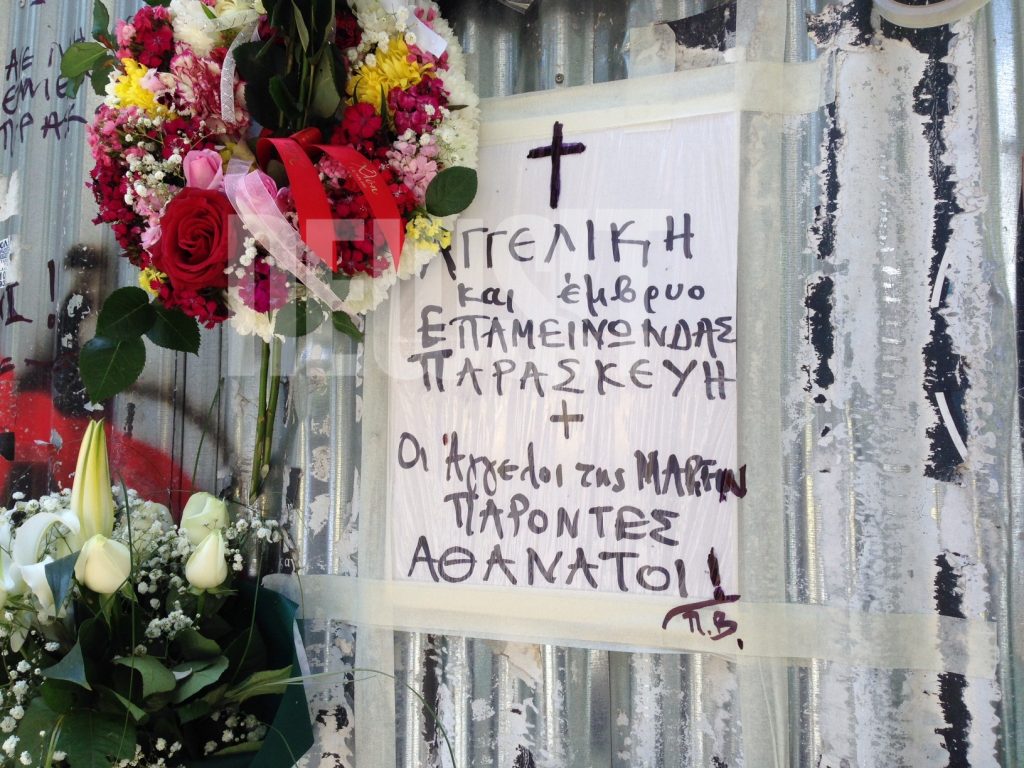 ΑΓΓΕΛΙΚΗ
και έμβρυο
ΕΠΑΜΕΙΝΩΝΔΑΣ
ΠΑΡΑΣΚΕΥΗ
+
Οι Άγγελοι της ΜΑΡΦΙΝ
ΠΑΡΟΝΤΕΣ
ΑΘΑΝΑΤΟΙ!
Π.Β.